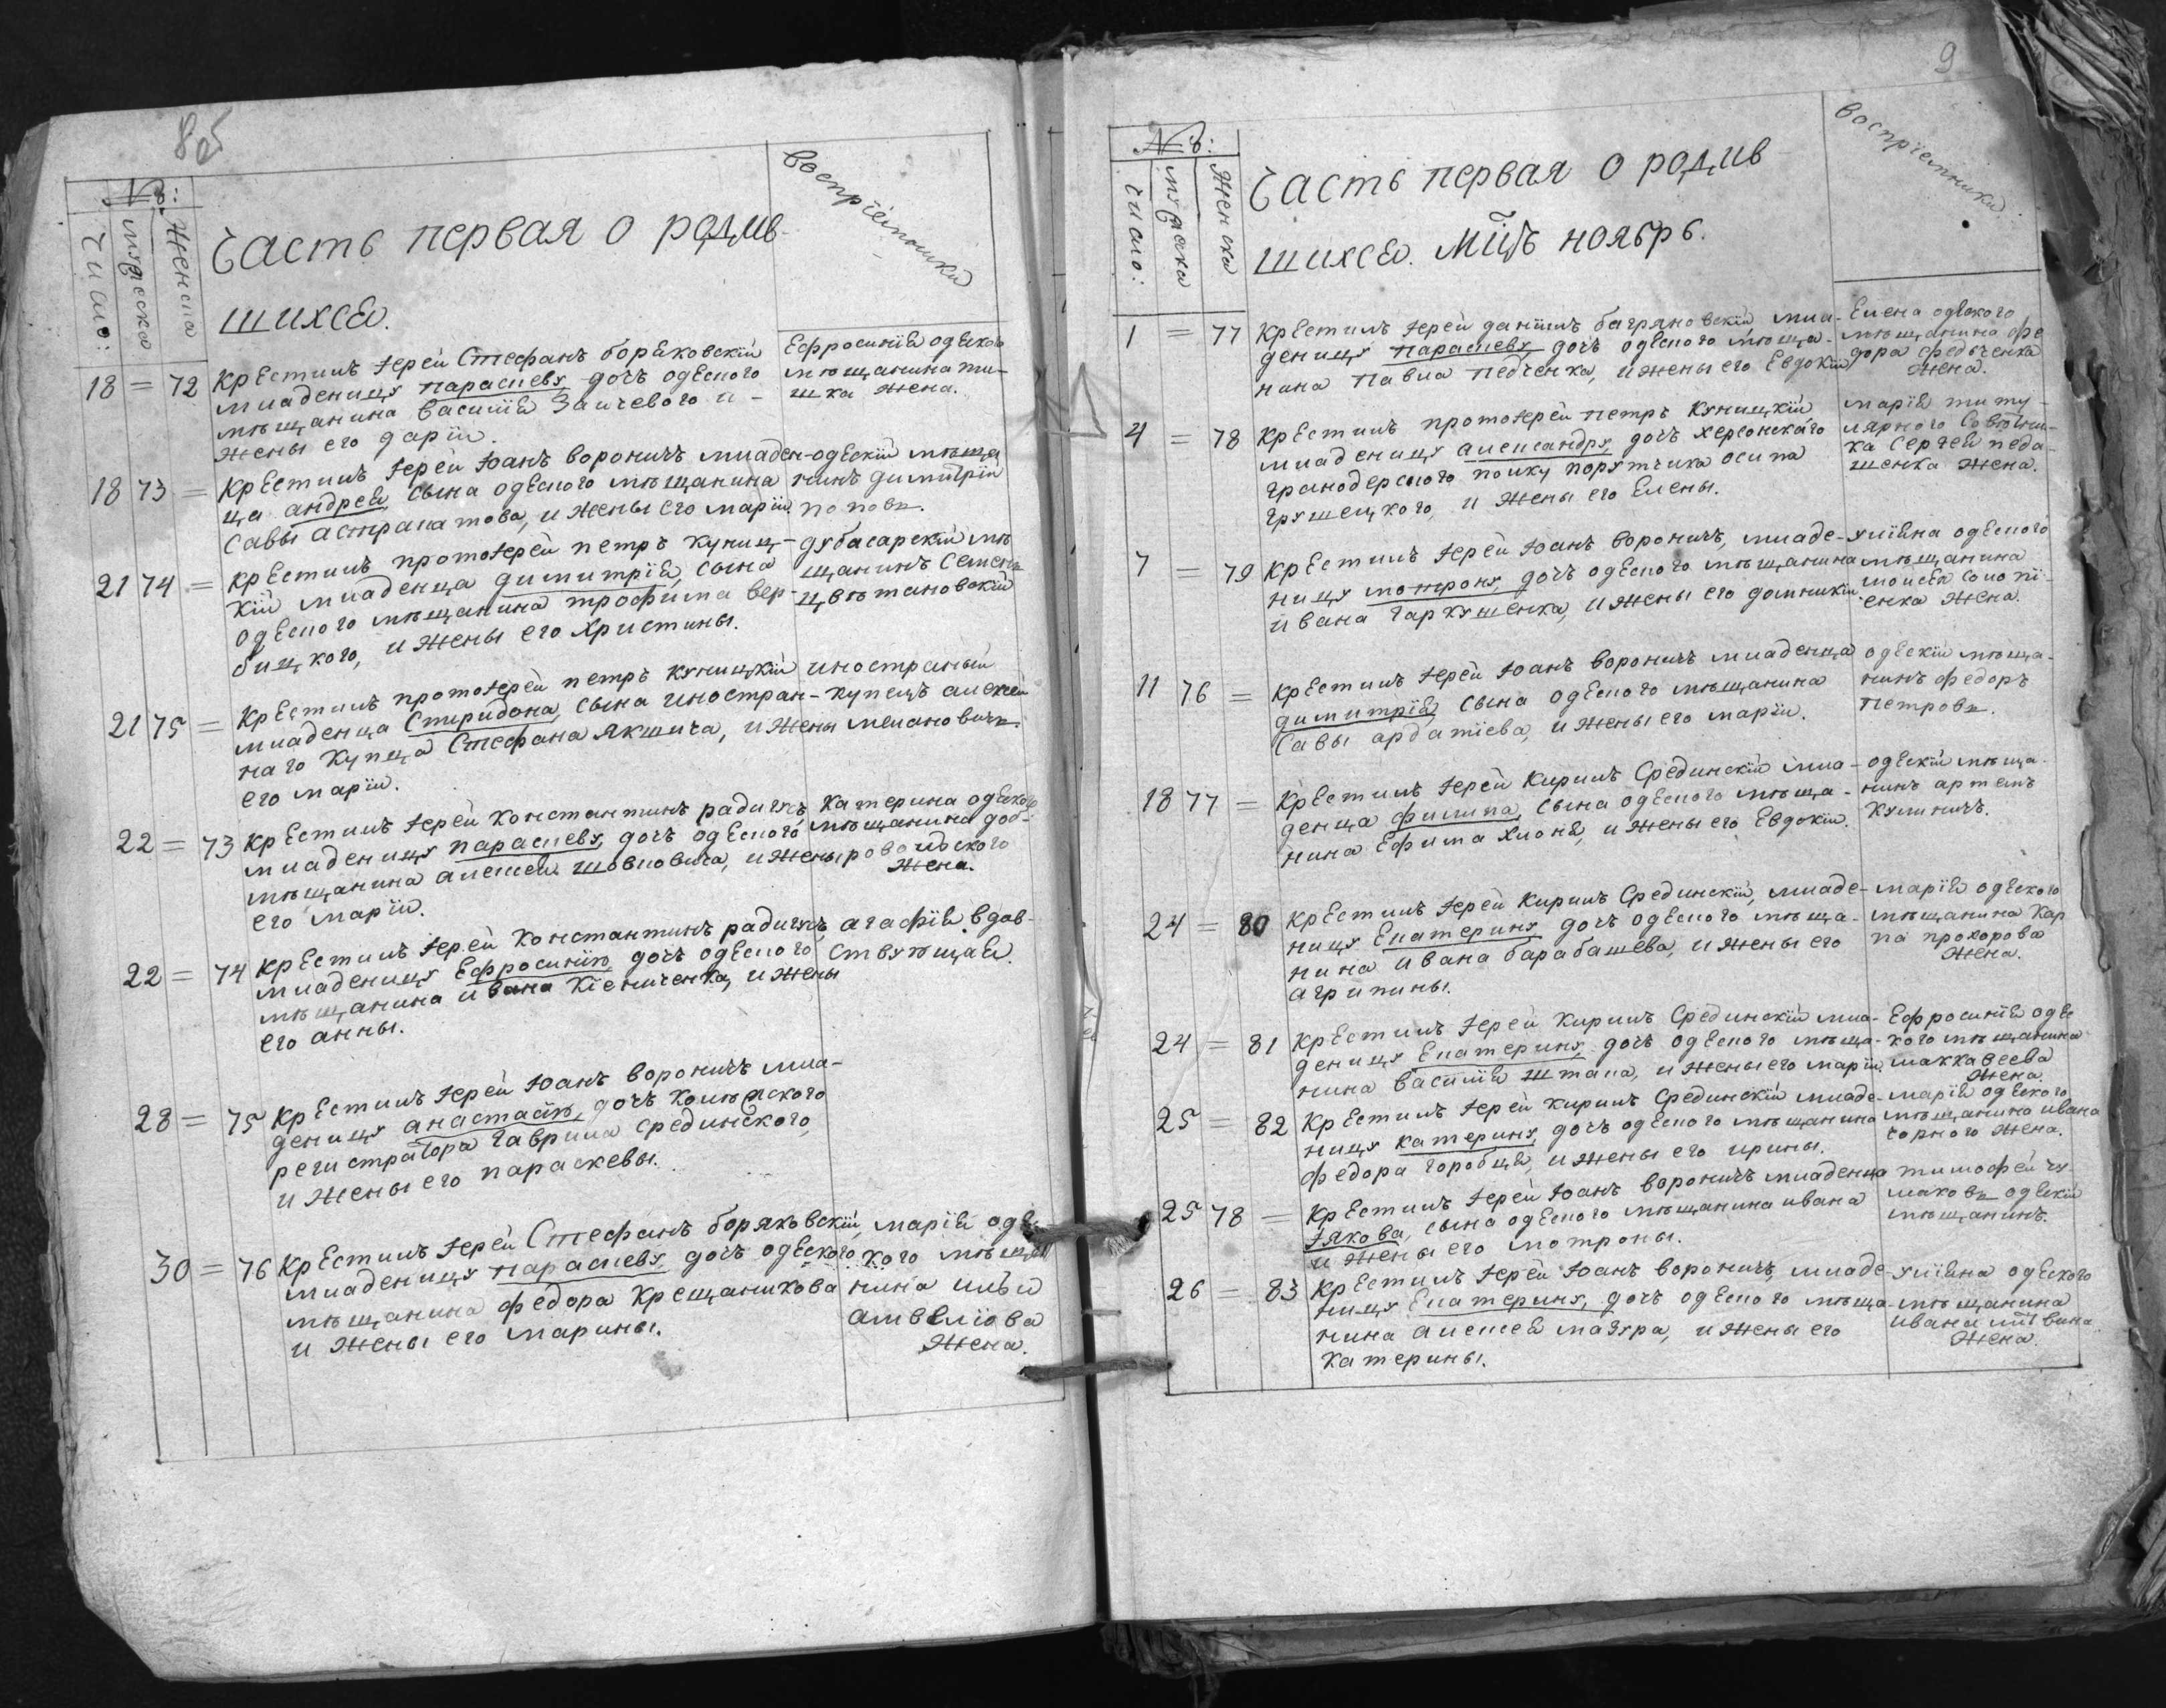 8 об
№:
число:
мужеска
женска
Часть первая о родив-
шихся.
воспріемники
18 = 72 Крестилъ іерей Стефанъ боржковскій
младеницу параскеву дочь одеского
мѣщанина василія Заичевого и
жены его даріи.
Ефросинія одеского
мѣщанина ти-
шка жена.
18 73 = Крестилъ іерей Іоанъ вороничъ младен-
ца андрея, сына одеского мѣщанина
Савы астрапатова, и жены его маріи.
одескій мѣща
нинъ димитрій
поповъ.
21 74 = Крестилъ протоіерей петръ куниц-
кій младенца димитрія, сына
одеского мѣщанина трофима вер-
бицкого, и жены его Христины.
дубасарскій мѣ
щанинъ Семенъ
цвѣтановскій
21 75 = Крестилъ протоіерей петръ куницкій
младенца Спиридона, сына иностран-
наго купца Стефана Якшича, и жены
его маріи.
иностраный
купецъ алексей
милановичъ.
22 = 73 Крестилъ іерей константинъ радичъ,
младеницу параскеву, дочь одеского
мѣщанина алексея шовковича, и жены
его маріи.
катерина одеского
мѣщанина доб-
ровольского
жена.
22 = 74 Крестилъ іерей константинъ радичъ,
младеницу Ефросинію, дочь одеского
мѣщанина ивана кіениченка, и жены
его анны.
агафія вдов-
ствующая.
28 = 75 Крестилъ іерей Іоанъ вороничъ мла-
деницу анастасію, дочь колѣжского
регистратора гаврила срединского,
и жены его параскевы.
30 = 76 Крестилъ іерей Стефанъ боржковскій,
младеницу параскеву, дочь одеского
мѣщанина федора крещаникова
и жены его марины.
марія оде
кого мѣща
нина ильи
амвеліова
жена.
9
№:
число:
мужеска
женска
Часть первая о родив
шихся. Мцъ ноябрь.
воспріемники
1 = 77 Крестилъ іерей даніилъ багряновскій мла-
деницу параскеву, дочь одеского мѣща-
нина павла педченка, и жены его Евдокіи
Елена одеского
мѣщанина фе
дора федченка
жена.
4 = 78 Крестилъ протоіерей петръ куницкій
младеницу александру, дочь херсонскаго
гранодерского полку порутчика осипа
грушецкого, и жены его Елены.
марія титу-
лярного Совѣтни-
ка Сергея педа-
шенка жена.
7 = 79 Крестилъ іерей Іоанъ вороничъ, младе-
ницу мотрону, дочь одеского мѣщанина
ивана гаркушенка, и жены его домникіи.
уліяна одеского
мѣщанина
мойсея солопі-
енка жена.
11 76 = Крестилъ іерей Іоанъ вороничъ младенца
димитрія, сына одеского мѣщанина
Савы ардатіева, и жены его маріи.
одескій мѣща-
нинъ федоръ
петровъ.
18 77 = Крестилъ іерей кирилъ Срединскій мла-
денца филипа, сына одеского мѣща-
нина Ефима хлоня, и жены его Евдокіи.
одескій мѣща-
нинъ артемъ
кулиничъ.
24 = 80 Крестилъ іерей кирилъ Срединскій, младе-
ницу Екатерину, дочь одеского мѣща-
нина ивана барабашева, и жены его
агрипины.
марія одеского
мѣщанина кар
па прохорова
жена.
24 = 81 Крестилъ іерей кирилъ Срединскій мла-
деницу Екатерину, дочь одеского мѣща-
нина василія штапа, и жены его маріи.
Ефросинія одес
кого мѣщанина
маккавеева
жена.
25 = 82 Крестилъ іерей кирилъ Срединскій младе-
ницу катерину, дочь одеского мѣщанина
федора горобця, и жены его ирины.
марія одеского
мѣщанина ивана
чорного жена.
25 78 = Крестилъ іерей Іоанъ вороничъ младенца
Іякова, сына одеского мѣщанина ивана
и жены его мотроны.
тимофей чу-
маковъ одескій
мѣщанинъ.
26 = 83 Крестилъ іерей Іоанъ вороничъ, младе-
ницу Екатерину, дочь одеского мѣща-
нина алексея мазура, и жены его
катерины.
уліяна одеского
мѣщанина
ивана литвина
жена.